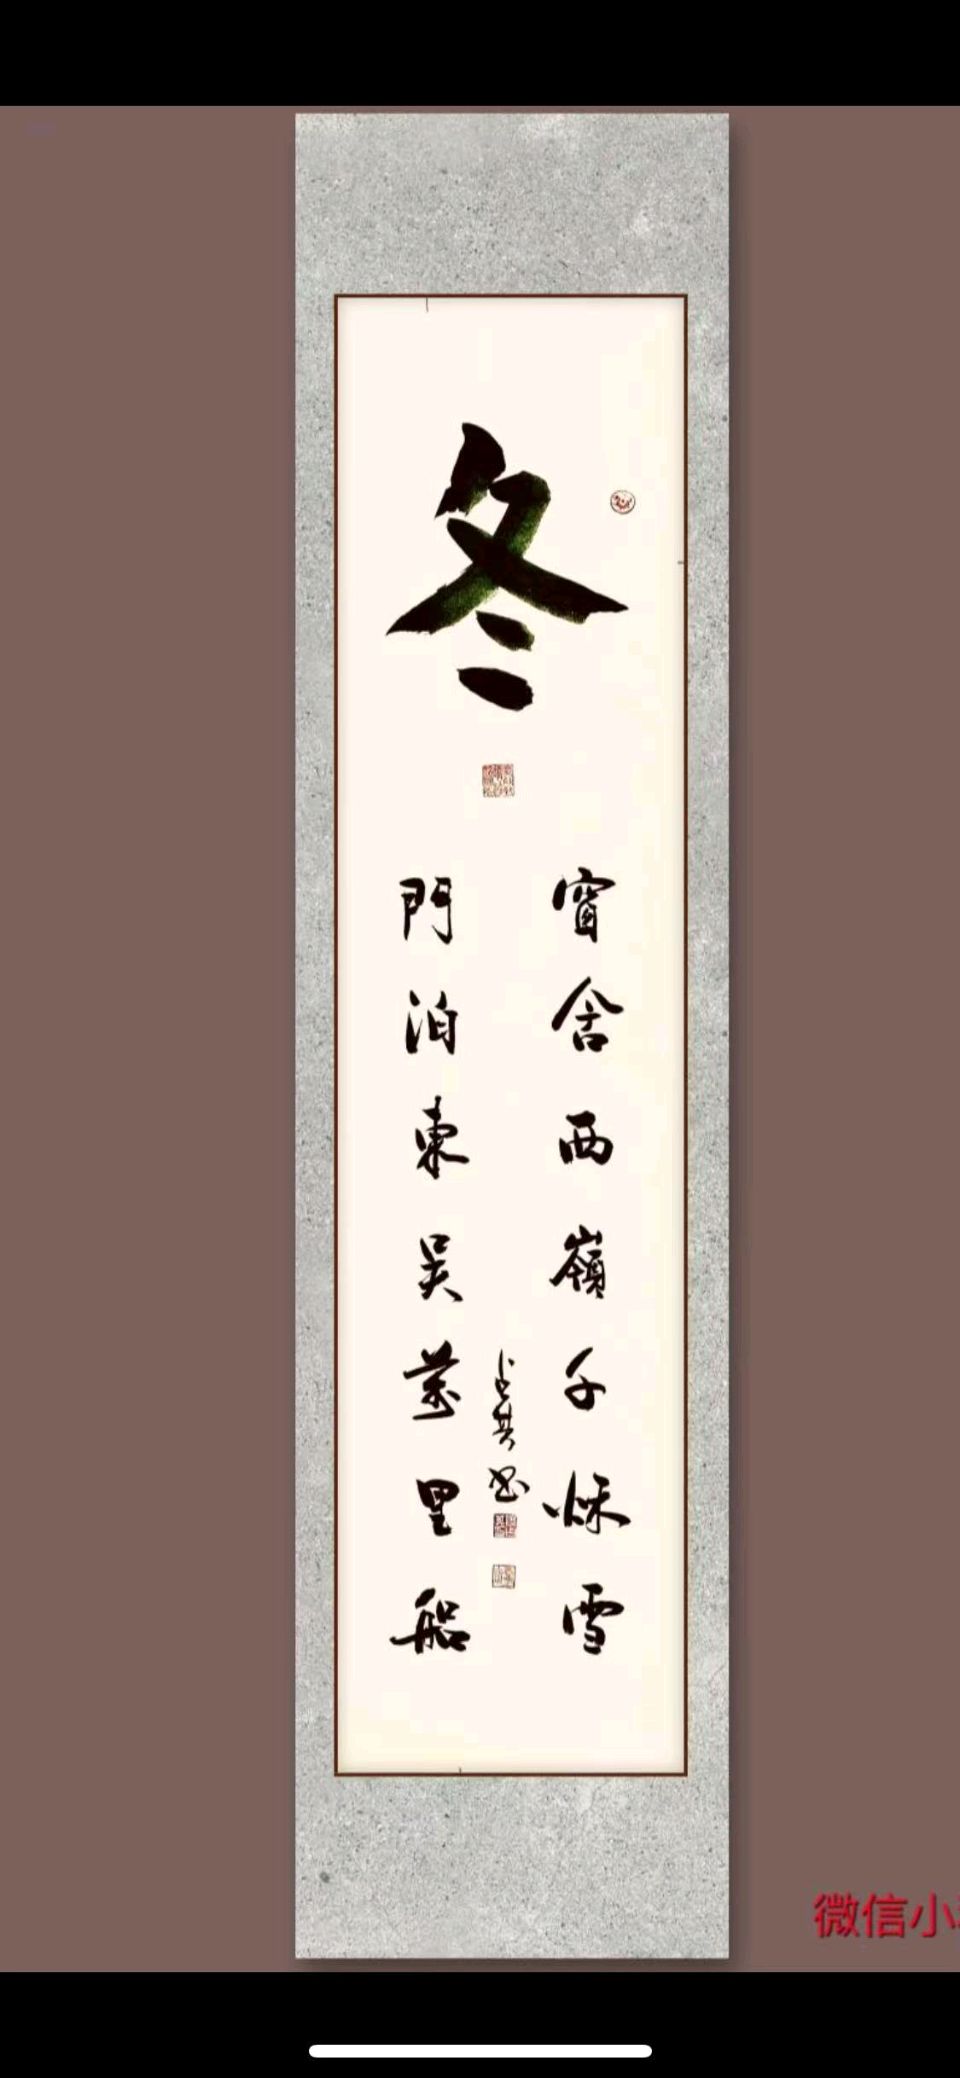 冬
窗含西嶺千秌雪
門泊東吴萬里船
书
微信小